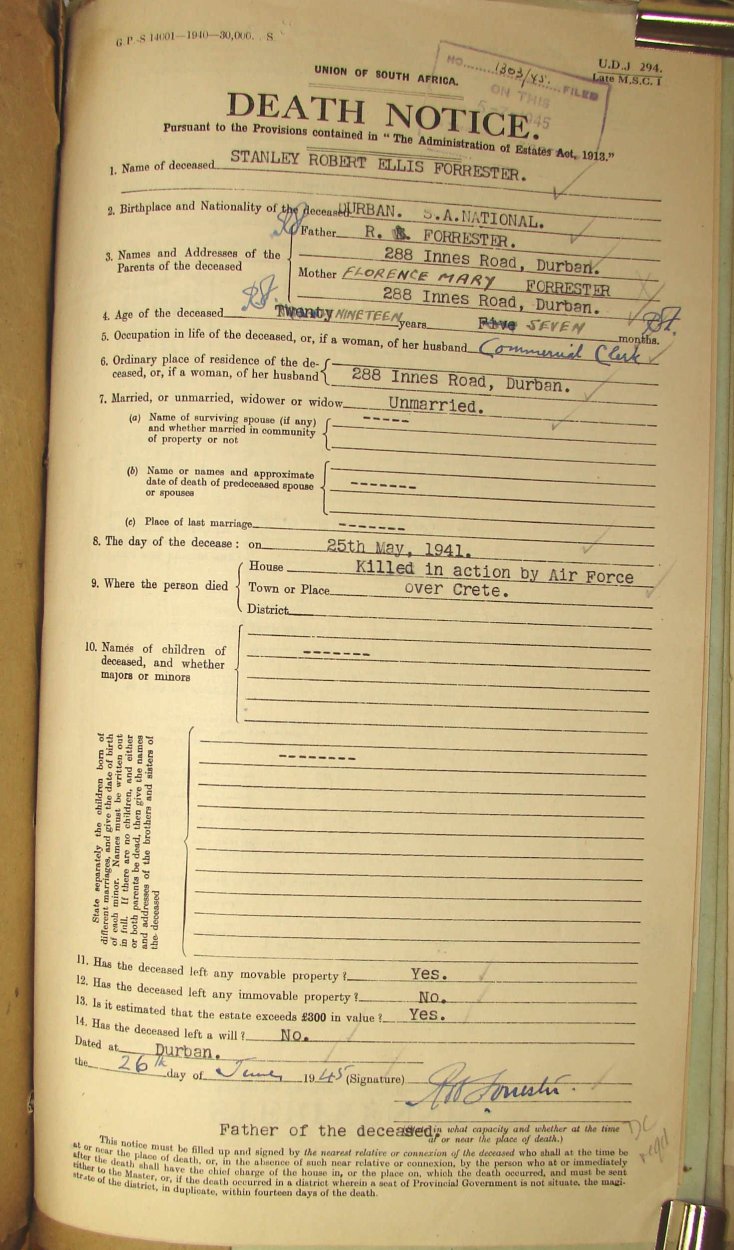 G.P.-S 14001—1940—30,000. . S.
NO. 1303/45. FILED
ON THIS
U.D.J 294.
Late M.S.C. 1
UNION OF SOUTH AFRICA.
DEATH NOTICE.
Pursuant to the Provisions contained in "The Administration of Estates Act, 1913."
1. Name of deceased STANLEY ROBERT ELLIS FORRESTER.
2. Birthplace and Nationality of the deceased DURBAN. S.A.NATIONAL.
3. Names and Addresses of the Parents of the deceased
Father R. FORRESTER.
288 Innes Road, Durban.
Mother FLORENCE MARY FORRESTER
288 Innes Road, Durban.
4. Age of the deceased Twenty NINETEEN years Five SEVEN months.
5. Occupation in life of the deceased, or, if a woman, of her husband Commercial Clerk
6. Ordinary place of residence of the de-
ceased, or, if a woman, of her husband 288 Innes Road, Durban.
7. Married, or unmarried, widower or widow Unmarried.
(a) Name of surviving spouse (if any) -----
and whether married in community
of property or not
(b) Name or names and approximate
date of death of predeceased spouse -------
or spouses
(c) Place of last marriage -------
8. The day of the decease: on 25th May, 1941.
9. Where the person died
House Killed in action by Air Force
Town or Place over Crete.
District
10. Names of children of
deceased, and whether -------
majors or minors
State separately the children born of
different marriages, and give the date of birth
of each minor. Names must be written out
in full. If there are no children, and either
or both parents be dead, then give the names
and addresses of the brothers and sisters of
the deceased
--------
11. Has the deceased left any movable property? Yes.
12. Has the deceased left any immovable property? No.
13. Is it estimated that the estate exceeds £300 in value? Yes.
14. Has the deceased left a will? No.
Dated at Durban.
the 26th day of June, 1945 (Signature) Forrester.
Father of the deceased.
(State in what capacity and whether at the time
at or near the place of death.)
This notice must be filled up and signed by the nearest relative or connexion of the deceased who shall at the time be
at or near the place of death, or, in the absence of such near relative or connexion, by the person who at or immediately
after the death shall have the chief charge of the house in, or the place on, which the death occurred, and must be sent
either to the Master, or, if the death occurred in a district wherein a seat of Provincial Government is not situate, the magi-
strate of the district, in duplicate, within fourteen days of the death.